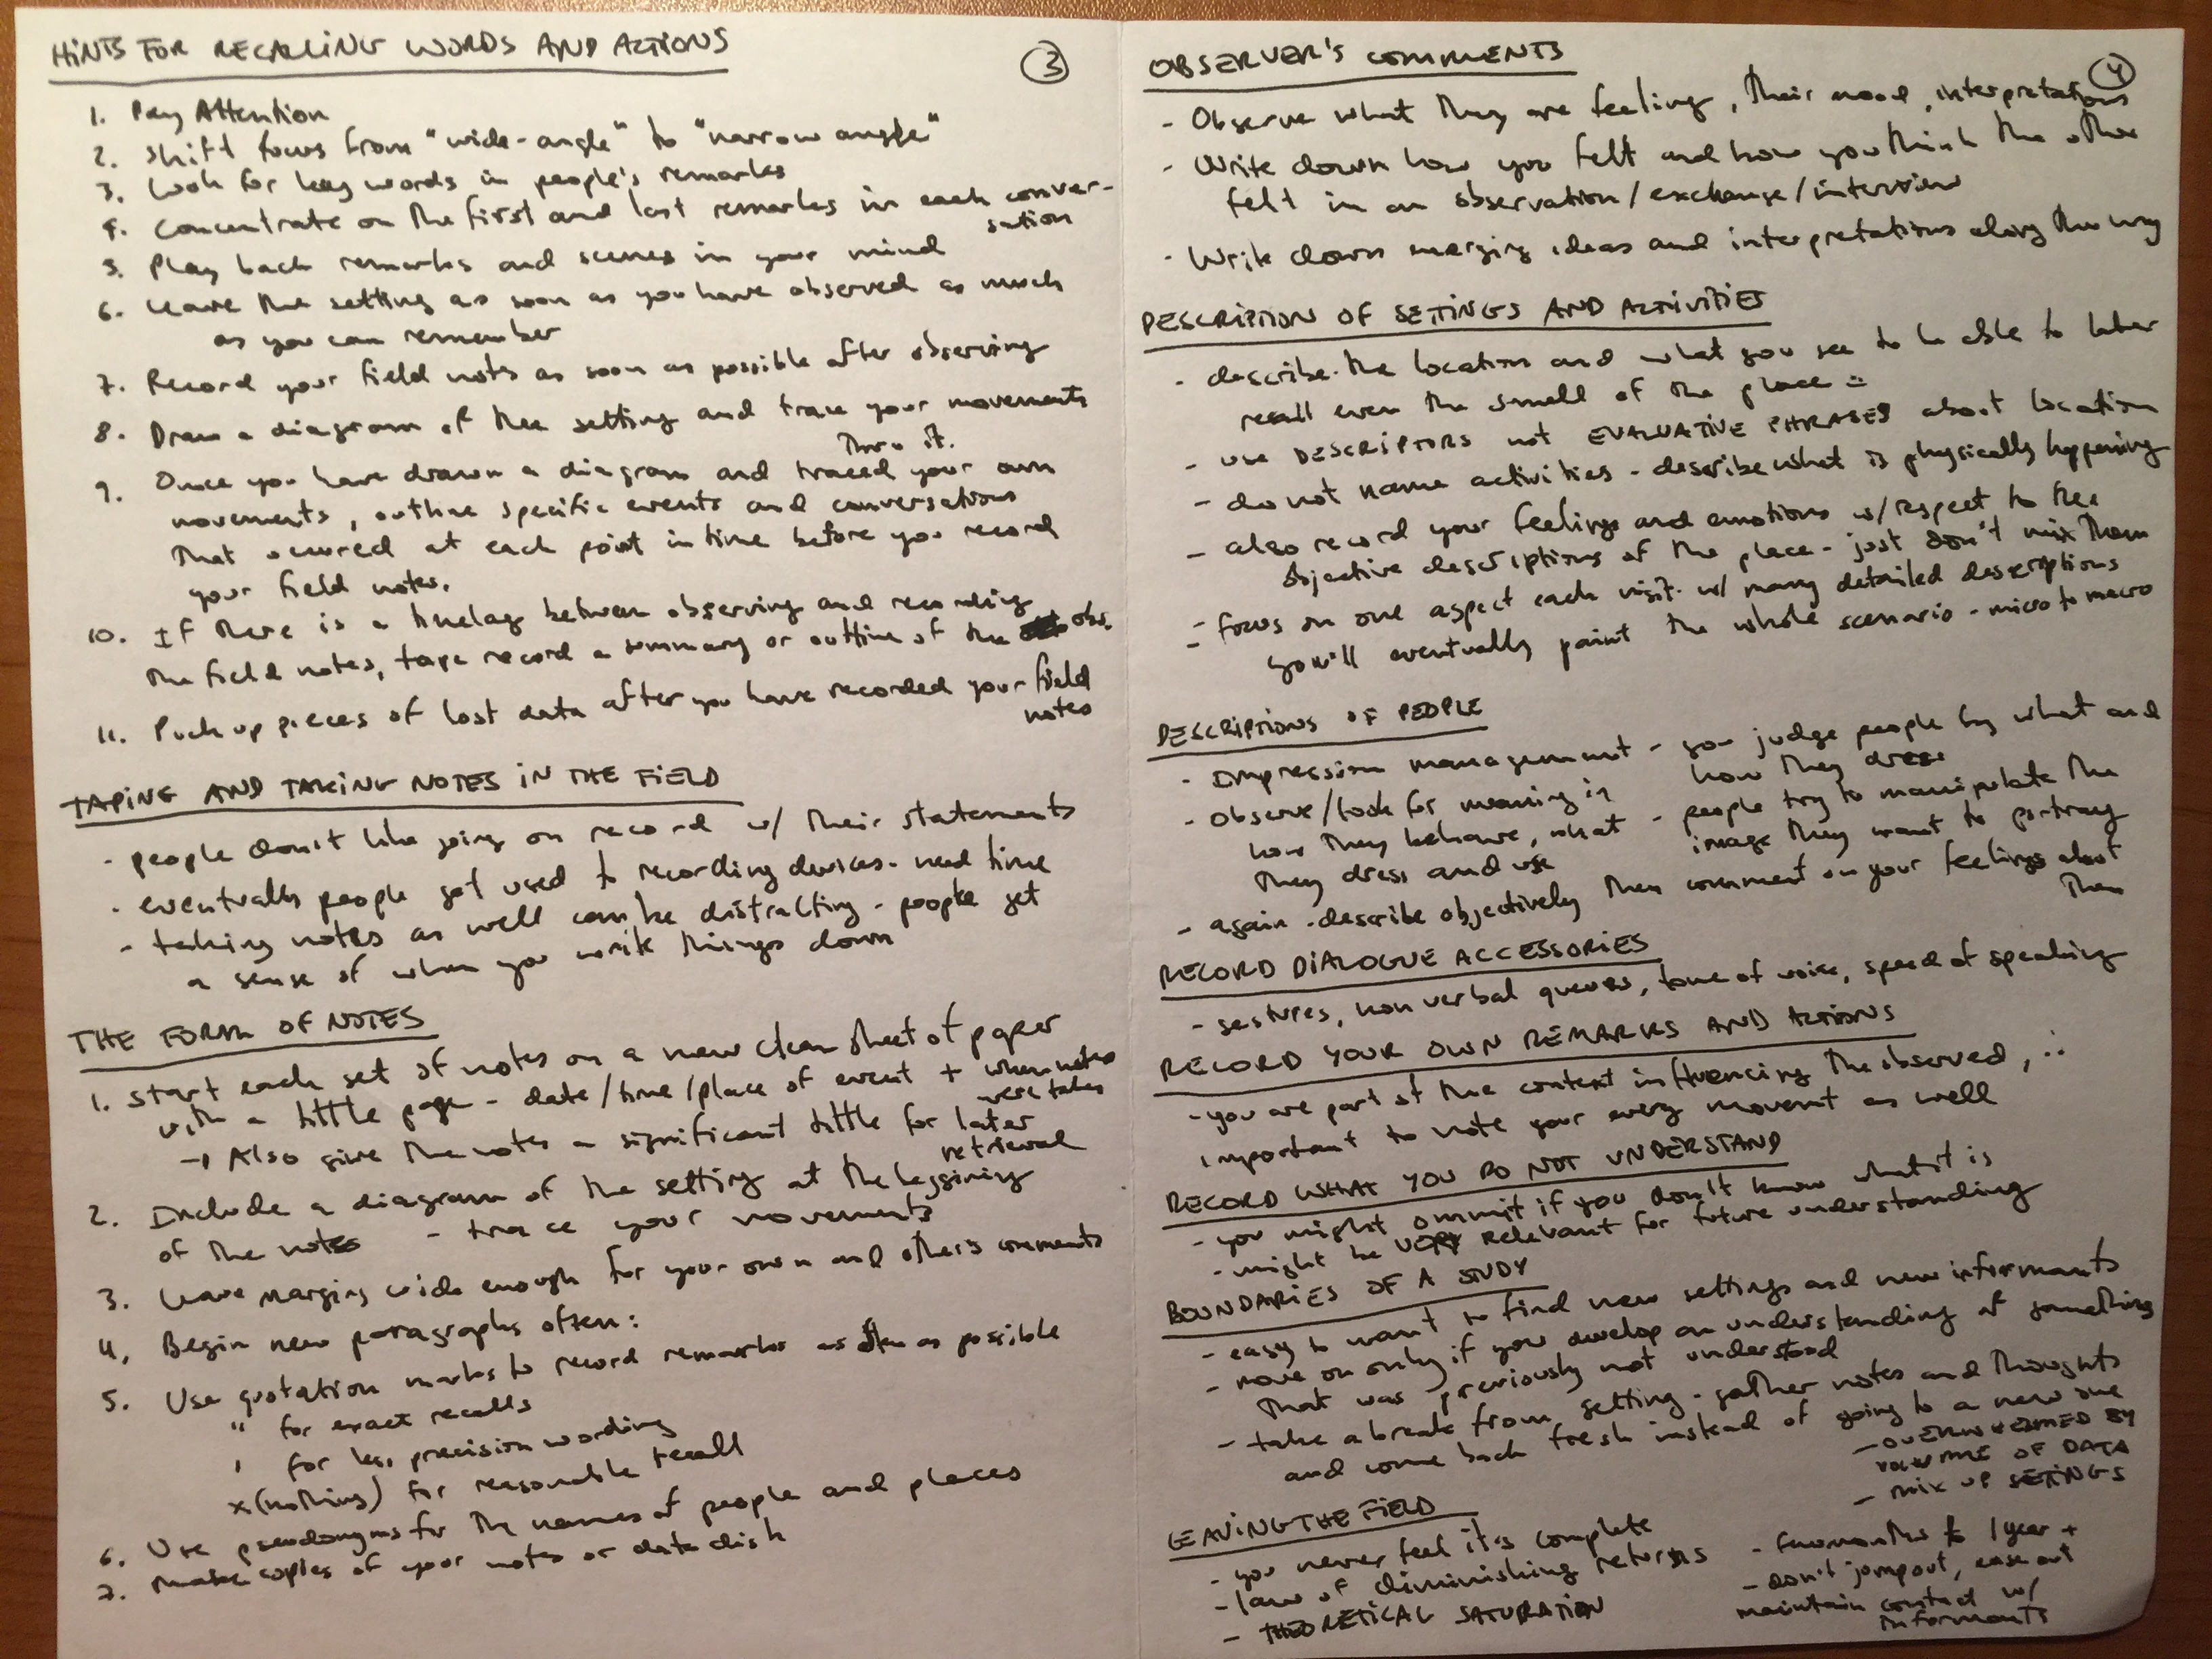 HINTS FOR RECALLING WORDS AND ACTIONS
3
1. Pay Attention
2. Shift focus from "wide-angle" to "narrow angle"
3. Look for key words in people's remarks
4. Concentrate on the first and last remarks in each conver-
sation
5. Play back remarks and scenes in your mind
6. Leave the setting as soon as you have observed as much
as you can remember
7. Record your field notes as soon as possible after observing
8. Draw a diagram of the setting and trace your movements
thru it.
9. Once you have drawn a diagram and traced your own
movements, outline specific events and conversations
that occured at each point in time before you record
your field notes.
10. If there is a timelag between observing and recording
the field notes, tape record a summary or outline of the obs.
11. Pick up pieces of lost data after you have recorded your field
notes
TAPING AND TAKING NOTES IN THE FIELD
- people don't like going on record w/ their statements
- eventually people get used to recording devices - need time
- taking notes as well can be distracting - people get
a sense of when you write things down
THE FORM OF NOTES
1. Start each set of notes on a new clean sheet of paper
with a tittle page - date/time/place of event + when notes
were taken
→ Also give the notes a significant tittle for later
retrieval
2. Include a diagram of the setting at the beggining
of the notes - trace your movements
3. Leave margins wide enough for your own and other's comments
4. Begin new paragraphs often:
5. Use quotation marks to record remarks as often as possible
" for exact recalls
' for less precision wording
x (nothing) for reasonable recall
6. Use pseudonyms for the names of people and places
7. Make copies of your notes or data disk
OBSERVER'S COMMENTS
4
- Observe what they are feeling, their mood, interpretations
- Write down how you felt and how you think the other
felt in an observation/exchange/interview
- Write down merging ideas and interpretations along the way
DESCRIPTION OF SETTINGS AND ACTIVITIES
- describe the location and what you see to be able to later
recall even the smell of the place
- use DESCRIPTORS not EVALUATIVE PHRASES about location
- do not name activities - describe what is physically happening
- also record your feelings and emotions w/respect to the
objective descriptions of the place - just don't mix them
- focus on one aspect each visit - w/ many detailed descriptions
you'll eventually paint the whole scenario - micro to macro
DESCRIPTIONS OF PEOPLE
- Impression management - you judge people by what and
how they dress
- Observe/look for meaning in
how they behave, what
they dress and use
- people try to manipulate the
image they want to portray
- again - describe objectively then comment on your feelings about
them
RECORD DIALOGUE ACCESSORIES
- gestures, non verbal queues, tone of voice, speed of speaking
RECORD YOUR OWN REMARKS AND ACTIONS
- you are part of the context influencing the observed, ∴
important to note your every movemt as well
RECORD WHAT YOU DO NOT UNDERSTAND
- you might ommit if you don't know what it is
- might be VERY relevant for future understanding
BOUNDARIES OF A STUDY
- easy to want to find new settings and new informants
- move on only if you develop an understanding of something
that was previously not understood
- take a break from setting - gather notes and thoughts
and come back fresh instead of going to a new one
- OVERWHELMED BY
VOLUME OF DATA
- MIX UP SETTINGS
LEAVING THE FIELD
- you never feel it's complete
- law of diminishing returns
- THEORETICAL SATURATION
- few months to 1 year +
- don't jump out, ease out
maintain contact w/
informants